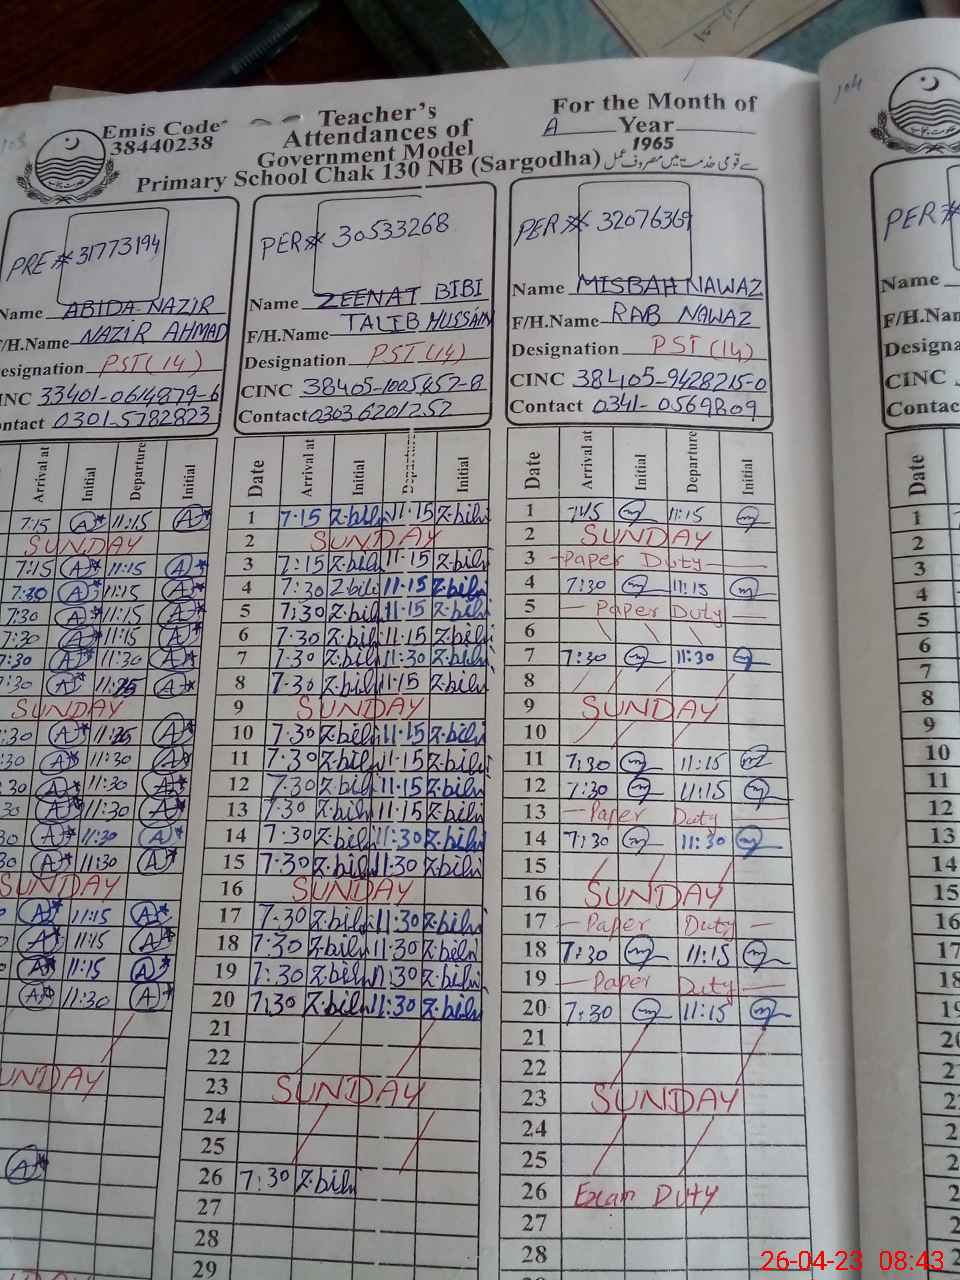 Emis Code
38440238
Teacher's
Attendances of
Government Model
Primary School Chak 130 NB (Sargodha)
For the Month of
A Year
1965
سے قومی خدمت میں مصروف عمل
104
PRE# 31773194
Name ABIDA NAZIR
F/H.Name NAZIR AHMAD
Designation PST (14)
CINC 33401-0614879-6
0301-5782823
Arrival at Initial Departure Initial
7:15 A 11:15 A
SUNDAY
7:15 A 11:15 A
7:30 A 11:15 A
7:30 A 11:15 A
7:30 A 11:15 A
7:30 A 11:30 A
7:30 A A
SUNDAY
:30 A A
:30 A 11:30 A
:30 A 11:30 A
30 A 11:30 A
30 A 11:30 A
30 A 11:30 A
SUNDAY
A 11:15 A
A 11:15 A
A 11:15 A
A 11:30 A
SUNDAY
A
PER# 30533268
Name ZEENAT BIBI
F/H.Name TALIB HUSSAIN
Designation PST (14)
CINC 38405-1005452-8
Contact 03036201252
Date Arrival at Initial Departure Initial
1 7.15 Z.bibi 11.15 Z.bibi
2 SUNDAY
3 7:15 Z.bibi 11.15 Z.bibi
4 7:30 Z.bibi 11.15 Z.bibi
5 7:30 Z.bibi 11.15 Z.bibi
6 7.30 Z.bibi 11.15 Z.bibi
7 7.30 Z.bibi 11.30 Z.bibi
8 7.30 Z.bibi 11.15 Z.bibi
9 SUNDAY
10 7.30 Z.bibi 11.15 Z.bibi
11 7.30 Z.bibi 11.15 Z.bibi
12 7.30 Z.bibi 11.15 Z.bibi
13 7.30 Z.bibi 11.15 Z.bibi
14 7.30 Z.bibi 11:30 Z.bibi
15 7.30 Z.bibi 11.30 Z.bibi
16 SUNDAY
17 7.30 Z.bibi 11.30 Z.bibi
18 7:30 Z.bibi 11.30 Z.bibi
19 7:30 Z.bibi 11:30 Z.bibi
20 7:30 Z.bibi 11:30 Z.bibi
21
22
23 SUNDAY
24
25
26 7:30 Z.bibi
27
28
29
PER# 32076369
Name MISBAH NAWAZ
F/H.Name RAB NAWAZ
Designation PST (14)
CINC 38405-9428215-0
Contact 0341-0569809
Date Arrival at Initial Departure Initial
1 7:15 11:15
2 SUNDAY
3 Paper Duty
4 7:30 11:15
5 Paper Duty
6
7 7:30 11:30
8
9 SUNDAY
10
11 7:30 11:15
12 7:30 11:15
13 Paper Duty
14 7:30 11:30
15
16 SUNDAY
17 Paper Duty
18 7:30 11:15
19 Paper Duty
20 7:30 11:15
21
22
23 SUNDAY
24
25
26 Exam Duty
27
28
PER#
Name
F/H.Name
Designa
CINC
Contact
Date
1
2
3
4
5
6
7
8
9
10
11
12
13
14
15
16
17
26-04-23 08:43